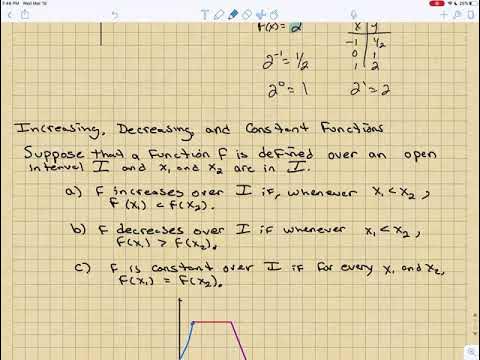 7:46 PM Wed Mar 18
25%
F(x) = 2
x y
-1 1/2
0 1
1 2
2⁻¹ = 1/2
2⁰ = 1 2¹ = 2
Increasing, Decreasing, and Constant Functions
Suppose that a function F is defined over an open
interval I and x₁ and x₂ are in I.
a) F increases over I if, whenever x₁ < x₂,
F(x₁) < F(x₂).
b) F decreases over I if whenever x₁ < x₂,
F(x₁) > F(x₂).
c) F is constant over I if for every x₁ and x₂,
F(x₁) = F(x₂).